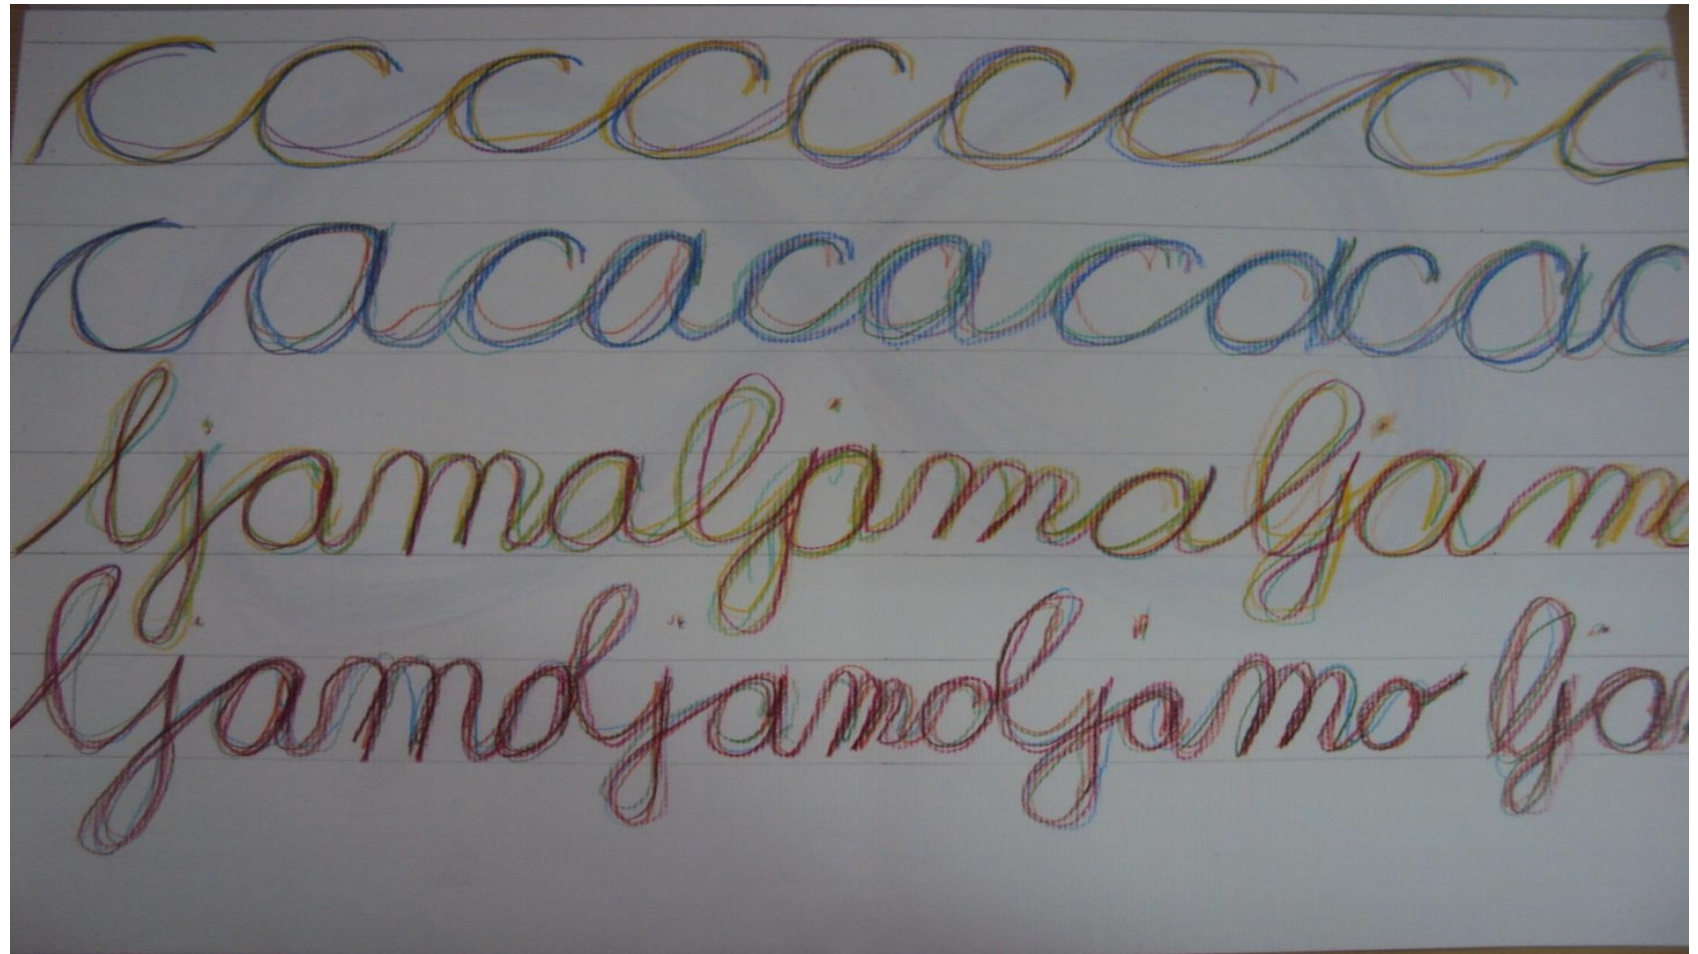 ccccccccc
cacacacacac
ljamaljamaljam
ljamoljamoljamo lja